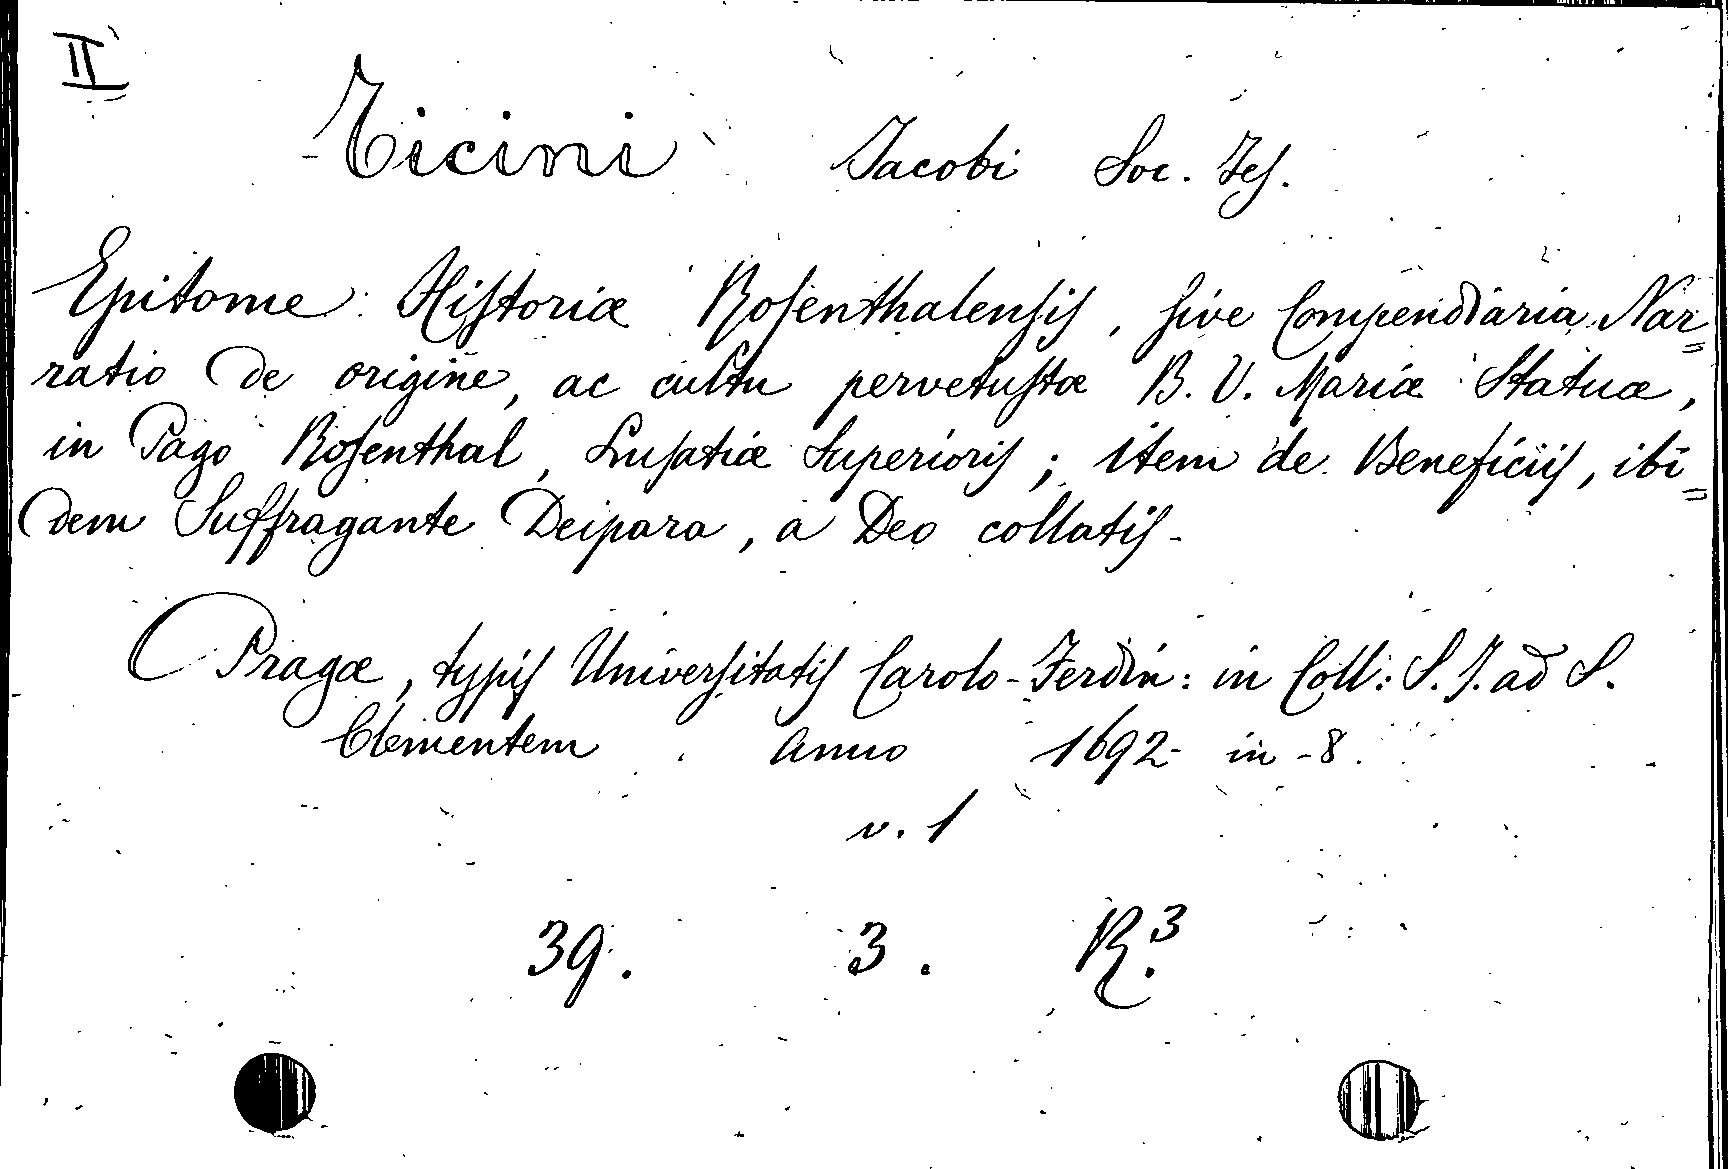 II
Ticini Jacobi Soc. Jeſ.
Epitome Hiſtoriæ Roſenthalenſiſ, ſive Compendiaria Nar=
ratio de origine, ac cultu pervetuſtæ B. V. Mariæ Statuæ,
in Pago Roſenthal, Luſatiæ Superioriſ; item de Beneficiiſ, ibi=
dem Suffragante Deipara, a Deo collatiſ.
Pragæ, typiſ Univerſitatiſ Carolo-Ferdin: in Coll: S. J. ad S.
Clementem Anno 1692 in -8.
v. 1
39. 3. R.3